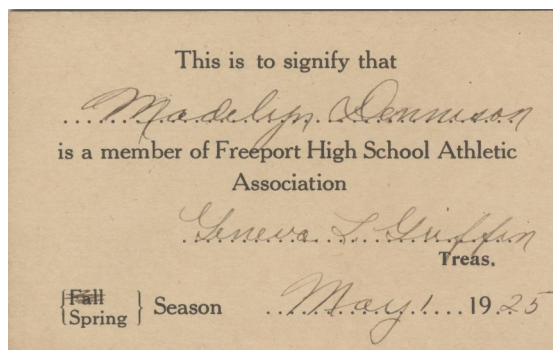 This is to signify that
Madelyn Dennison
is a member of Freeport High School Athletic
Association
Geneva L Griffin
Treas.
Fall
Spring } Season May 1 1925